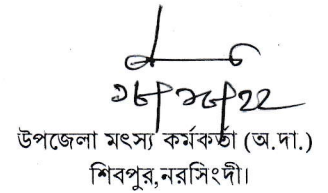 উপজেলা মৎস্য কর্মকর্তা (অ.দা.)
শিবপুর,নরসিংদী।